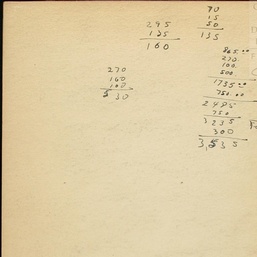 70
15
50
135
295
135
160
865.00
270
100.
500
1735.00
750.00
2485
750
3235
300
3,535
270
160
100
530